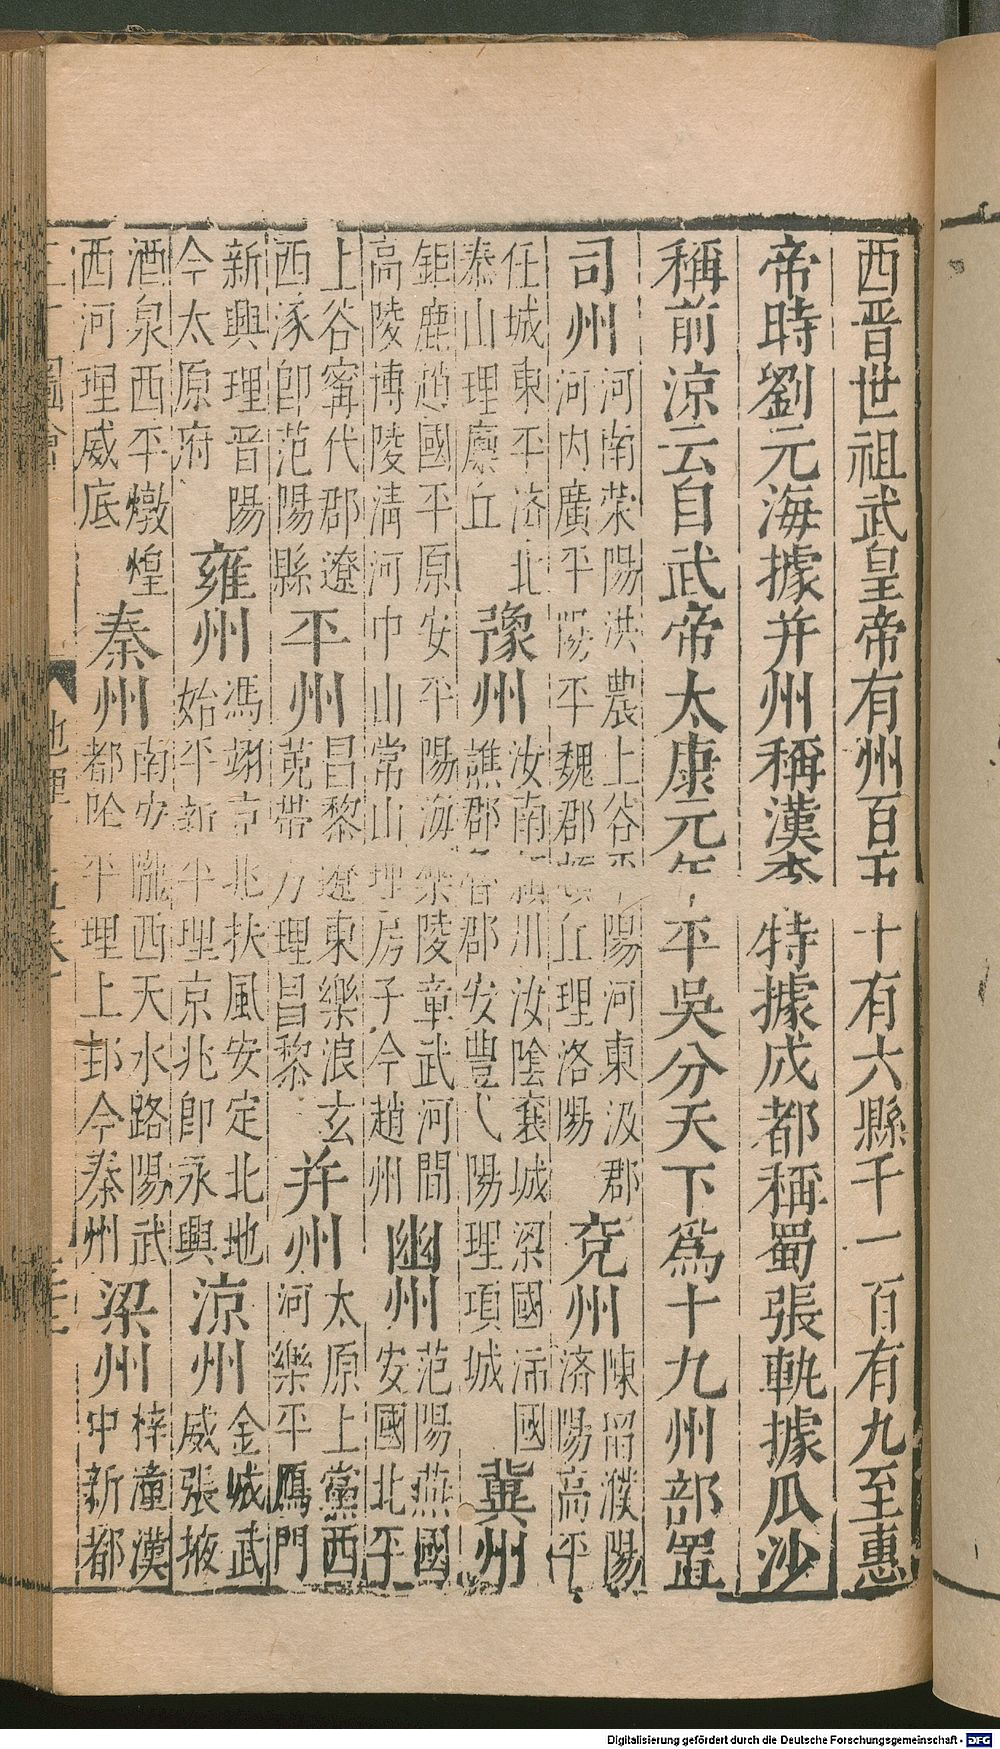 西晋世祖武皇帝有州百五十有六縣千一百有九至惠
帝時劉元海據并州稱漢李特據成都稱蜀張軌據瓜沙
稱前涼云自武帝太康元年平吳分天下爲十九州部置
司州 河南荣陽洪農上谷平陽河東汲郡
河内廣平陽平魏郡頓丘理洛陽
兖州 陳留濮陽
濟陽高平
任城東平济北
泰山理廪丘
豫州 汝南潁川汝陰襄城梁國沛國
譙郡魯郡安豐弋陽理項城
冀州
鉅鹿趙國平原安平陽海樂陵章武河間
高陵博陵清河中山常山理房子今趙州
幽州 范陽燕國
安國北平
上谷甯代郡遼
西涿卽范陽縣
平州 昌黎遼東樂浪玄
菟帶方理昌黎
并州 太原上黨西
河樂平鴈門
新興理晋陽
今太原府
雍州 馮翊京兆扶風安定北地
始平新平理京兆卽永興
涼州 金城武
威張掖
酒泉西平燉煌
西河理威底
秦州 南安隴西天水路陽武
都陰平理上邽今秦州
梁州 梓潼漢
中新都
Digitalisierung gefördert durch die Deutsche Forschungsgemeinschaft - DFG